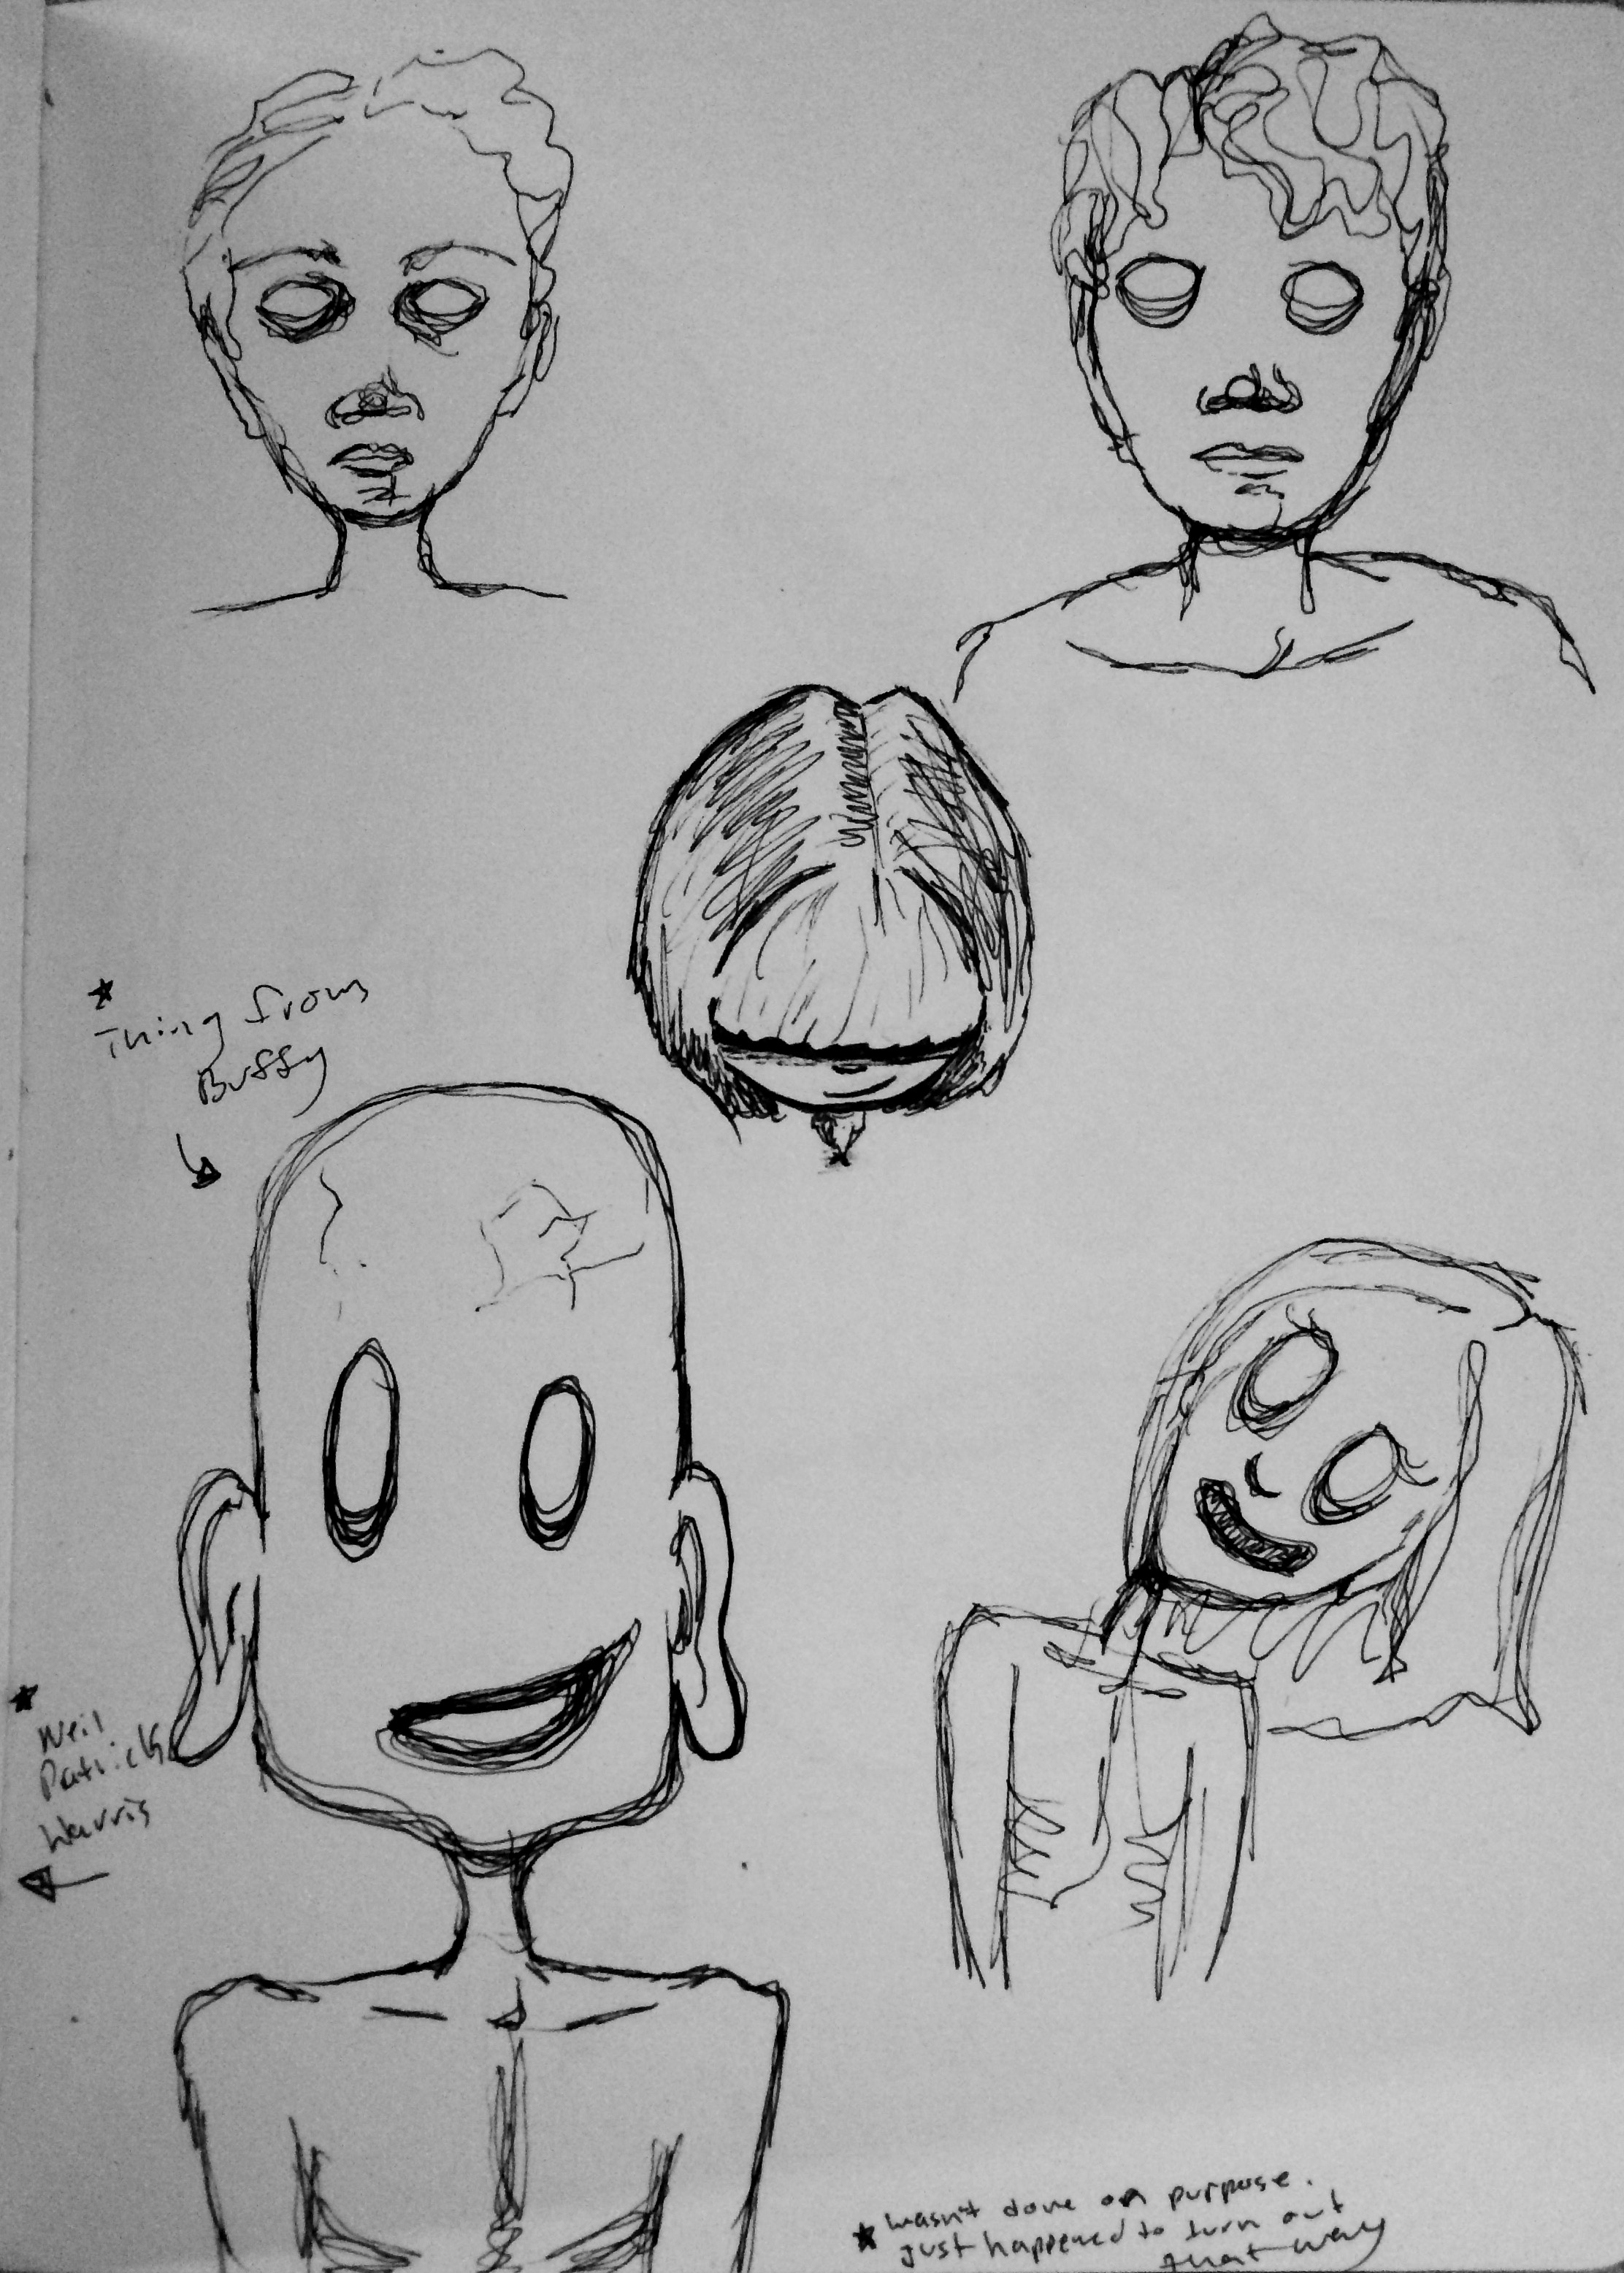 * Thing from
Buffy
* Neil
Patrick
Harris
* wasn't done on purpose.
just happened to turn out
that way